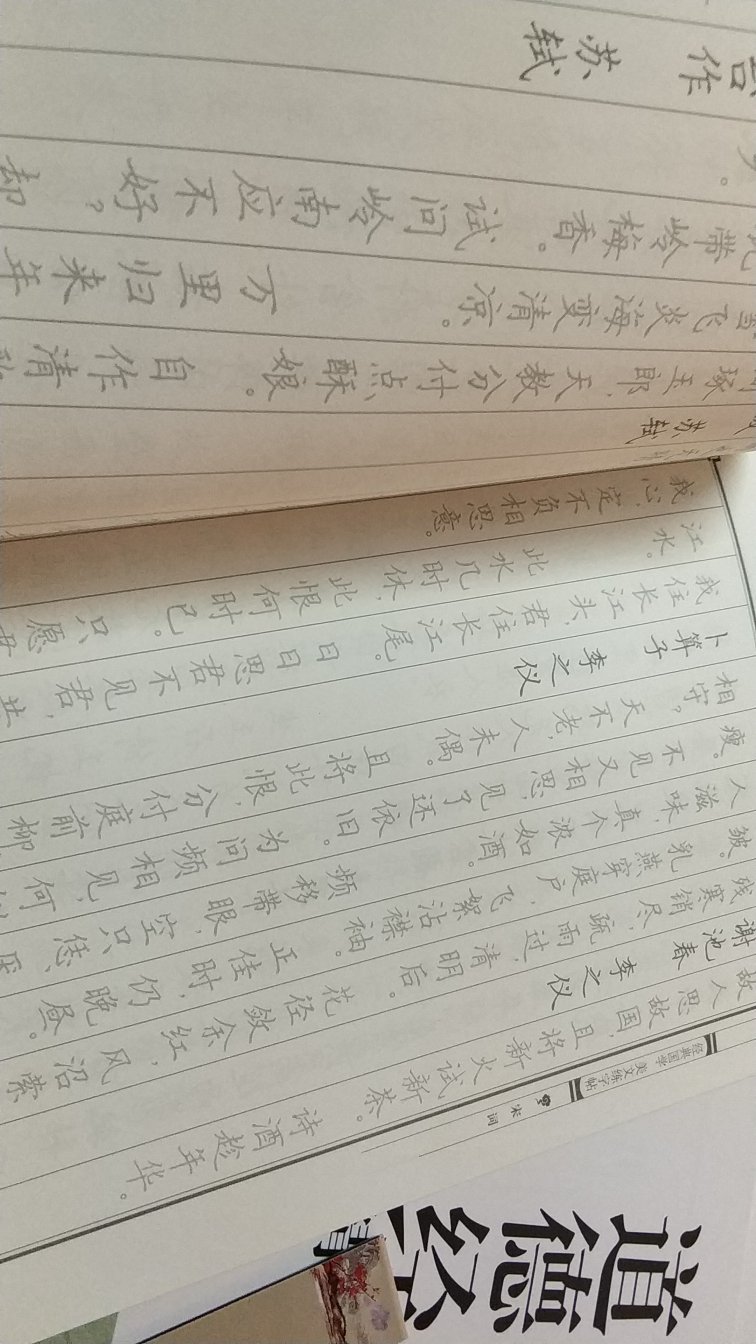 故人思故国,且将新火试新茶。 诗酒趁年华。
谢池春 李之仪
残寒销尽,疏雨过,清明后。花径敛余红,风沼萦
皱。乳燕穿庭户,飞絮沾襟袖。正佳时,仍晚昼。
人滋味,真个浓如酒。 频移带眼,空只恁、厌
瘦。不见又相思,见了还依旧。为问频相见,何似
相守?天不老,人未偶。且将此恨,分付庭前柳
卜算子 李之仪
我住长江头,君住长江尾。 日日思君不见君,共
江水。 此水几时休,此恨何时已。 只愿君
我心,定不负相思意。
苏轼
琢玉郎,天教分付点酥娘。 自作清
雪飞炎海变清凉。 万里归来年
带岭梅香。 试问岭南应不好? 却
作 苏轼
经典国学 美文练字帖
宋词
道德经